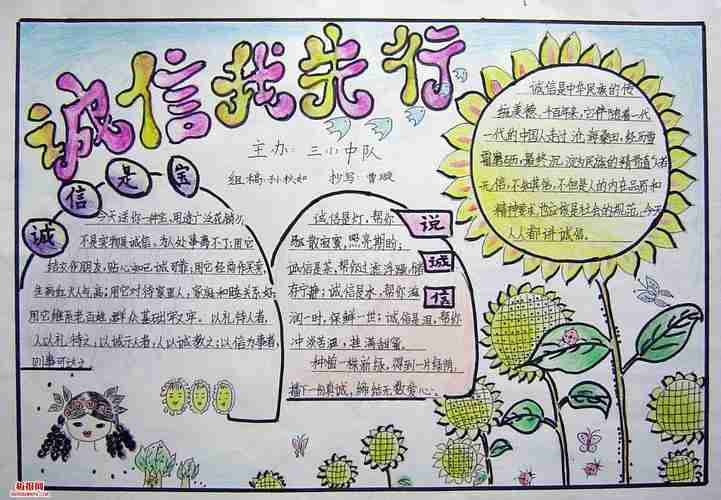 诚信我先行
主办: 三小中队
组稿: 孙秋如 抄写: 曹璇
诚信是宝
今天送你一种宝,用途广泛花销少,
不是实物是诚信,为人处事离不了;用它
结交作朋友,贴心知己诚可靠;用它经商作买卖,
生意红火人气高;用它对待家里人,家庭和睦关系好;
用它维系老百姓,群众基础牢又牢。以礼待人者,
人以礼待之;以诚示人者,人以诚教之;以信为事者,
说诚信
诚信是灯,帮你
驱散寂寞,照亮期盼;
诚信是茶,帮你过滤浮躁,储
存宁静;诚信是水,帮你滋
润一时,保鲜一世;诚信是泪,帮你
冲淡苦涩,挂满甜蜜。
种植一棵新绿,得到一片绿荫,
播下一份真诚,缔结无数爱心。
诚信是中华民族的传
统美德,千百年来,它伴随着一代
一代的中国人走过沧海桑田,经历雪
霜磨砺,最终沉淀为民族的精骨道"人若
无信,不知其他,不但是人的内在品质和
精神要求,也应该是社会的规范,今天
人人都讲诚信。
板报网